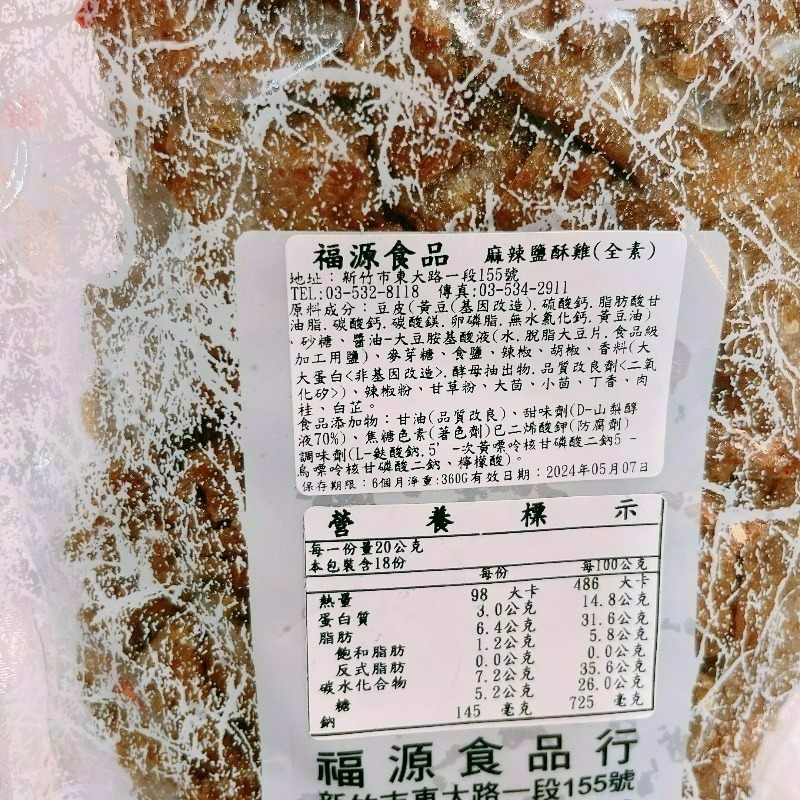 福源食品 麻辣鹽酥雞(全素)
地址：新竹市東大路一段155號
TEL:03-532-8118 傳真:03-534-2911
原料成分：豆皮(黃豆(基因改造).硫酸鈣.脂肪酸甘
油脂.碳酸鈣.碳酸鎂.卵磷脂.無水氯化鈣.黃豆油)
、砂糖、醬油-大豆胺基酸液(水.脫脂大豆片.食品級
加工用鹽)、麥芽糖、食鹽、辣椒、胡椒、香料(大
大蛋白<非基因改造>.酵母抽出物.品質改良劑<二氧
化矽>)、辣椒粉、甘草粉、大茴、小茴、丁香、肉
桂、白芷。
食品添加物：甘油(品質改良)、甜味劑(D-山梨醇
液70%)、焦糖色素(著色劑)已二烯酸鉀(防腐劑)
調味劑(L-麩酸鈉.5'-次黃嘌呤核甘磷酸二鈉5-
鳥嘌呤核甘磷酸二鈉、檸檬酸)。
保存期限：6個月淨重:360G有效日期：2024年05月07日
營養標示
每一份量20公克
本包裝含18份
每份 每100公克
熱量 98 大卡 486 大卡
蛋白質 3.0公克 14.8公克
脂肪 6.4公克 31.6公克
飽和脂肪 1.2公克 5.8公克
反式脂肪 0.0公克 0.0公克
碳水化合物 7.2公克 35.6公克
糖 5.2公克 26.0公克
鈉 145 毫克 725 毫克
福源食品行
新竹市東大路一段155號